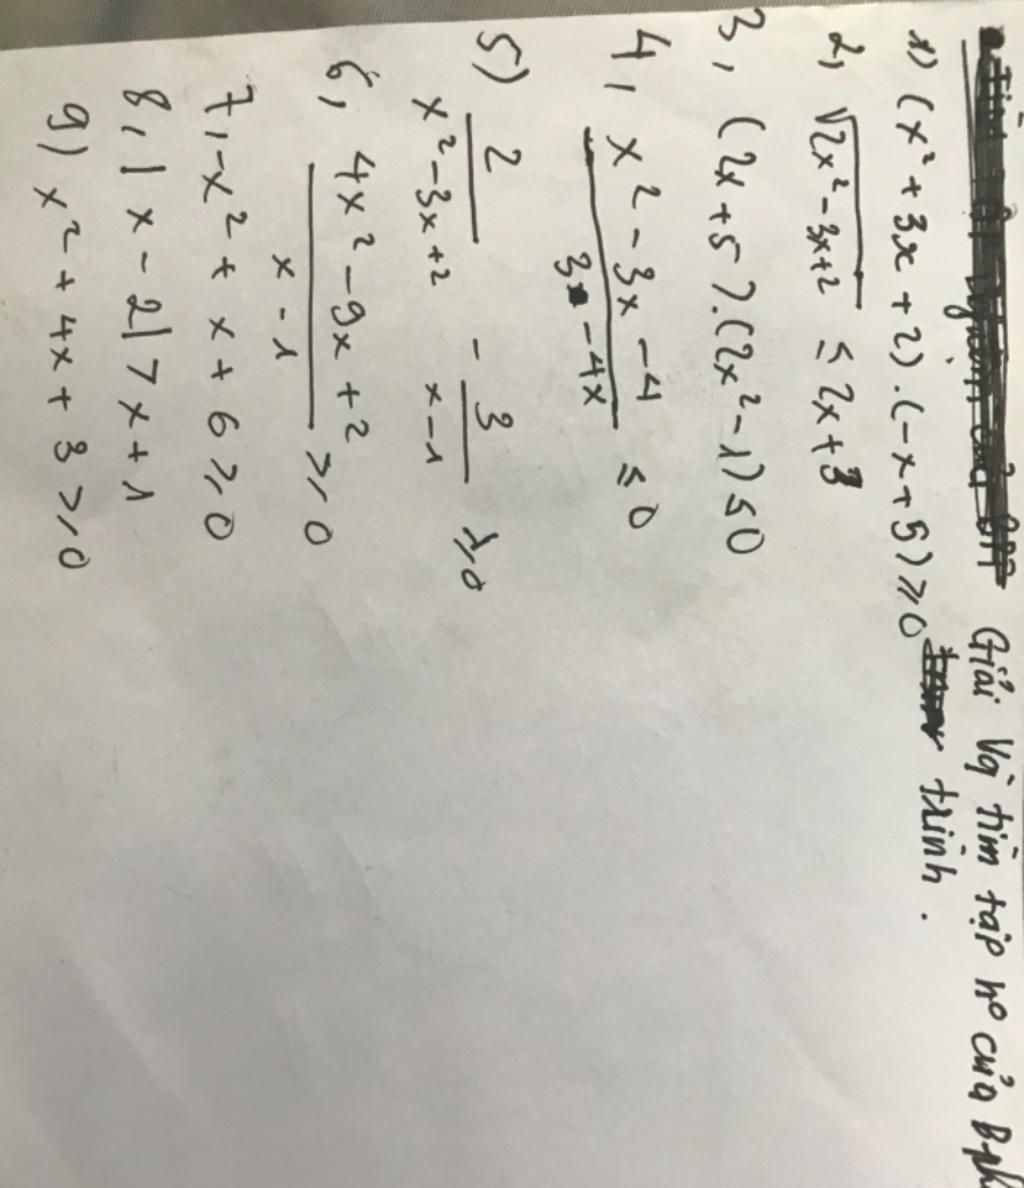 Giải Và tìm tập no của B.ph
trình.
1) (x² + 3x + 2).(-x+5) ≥ 0
2, √2x² - 3x+2 ≤ 2x+3
3, (2x+5).(2x² - 1) ≤ 0
4, x² - 3x - 4
3 - 4x
≤ 0
5) 2
x² - 3x + 2
- 3
x - 1
≥ 0
6, 4x² - 9x + 2
x - 1
≥ 0
7, -x² + x + 6 ≥ 0
8, |x - 2| > x + 1
9) x² + 4x + 3 ≥ 0